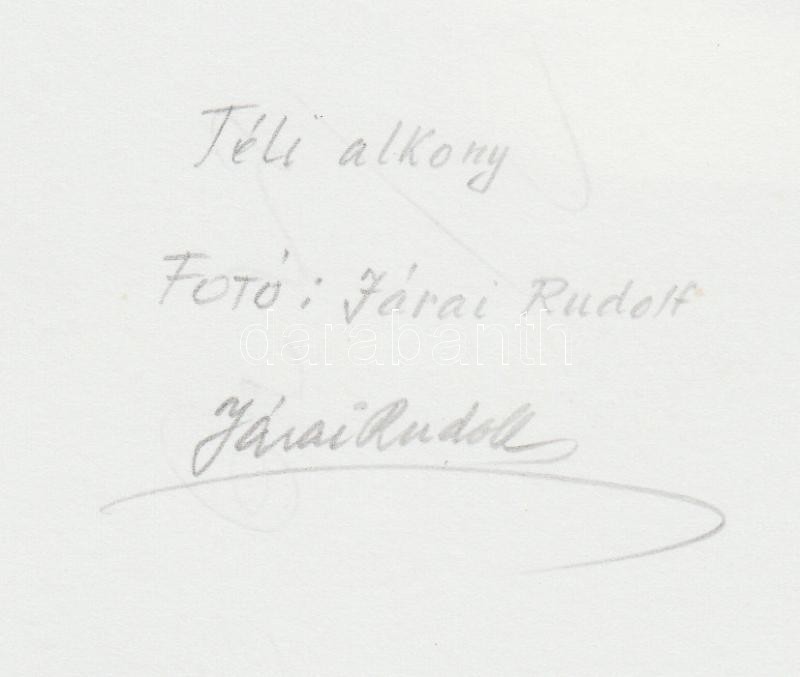 Téli alkony
Fotó: Járai Rudolf
darabanth
Járai Rudolf